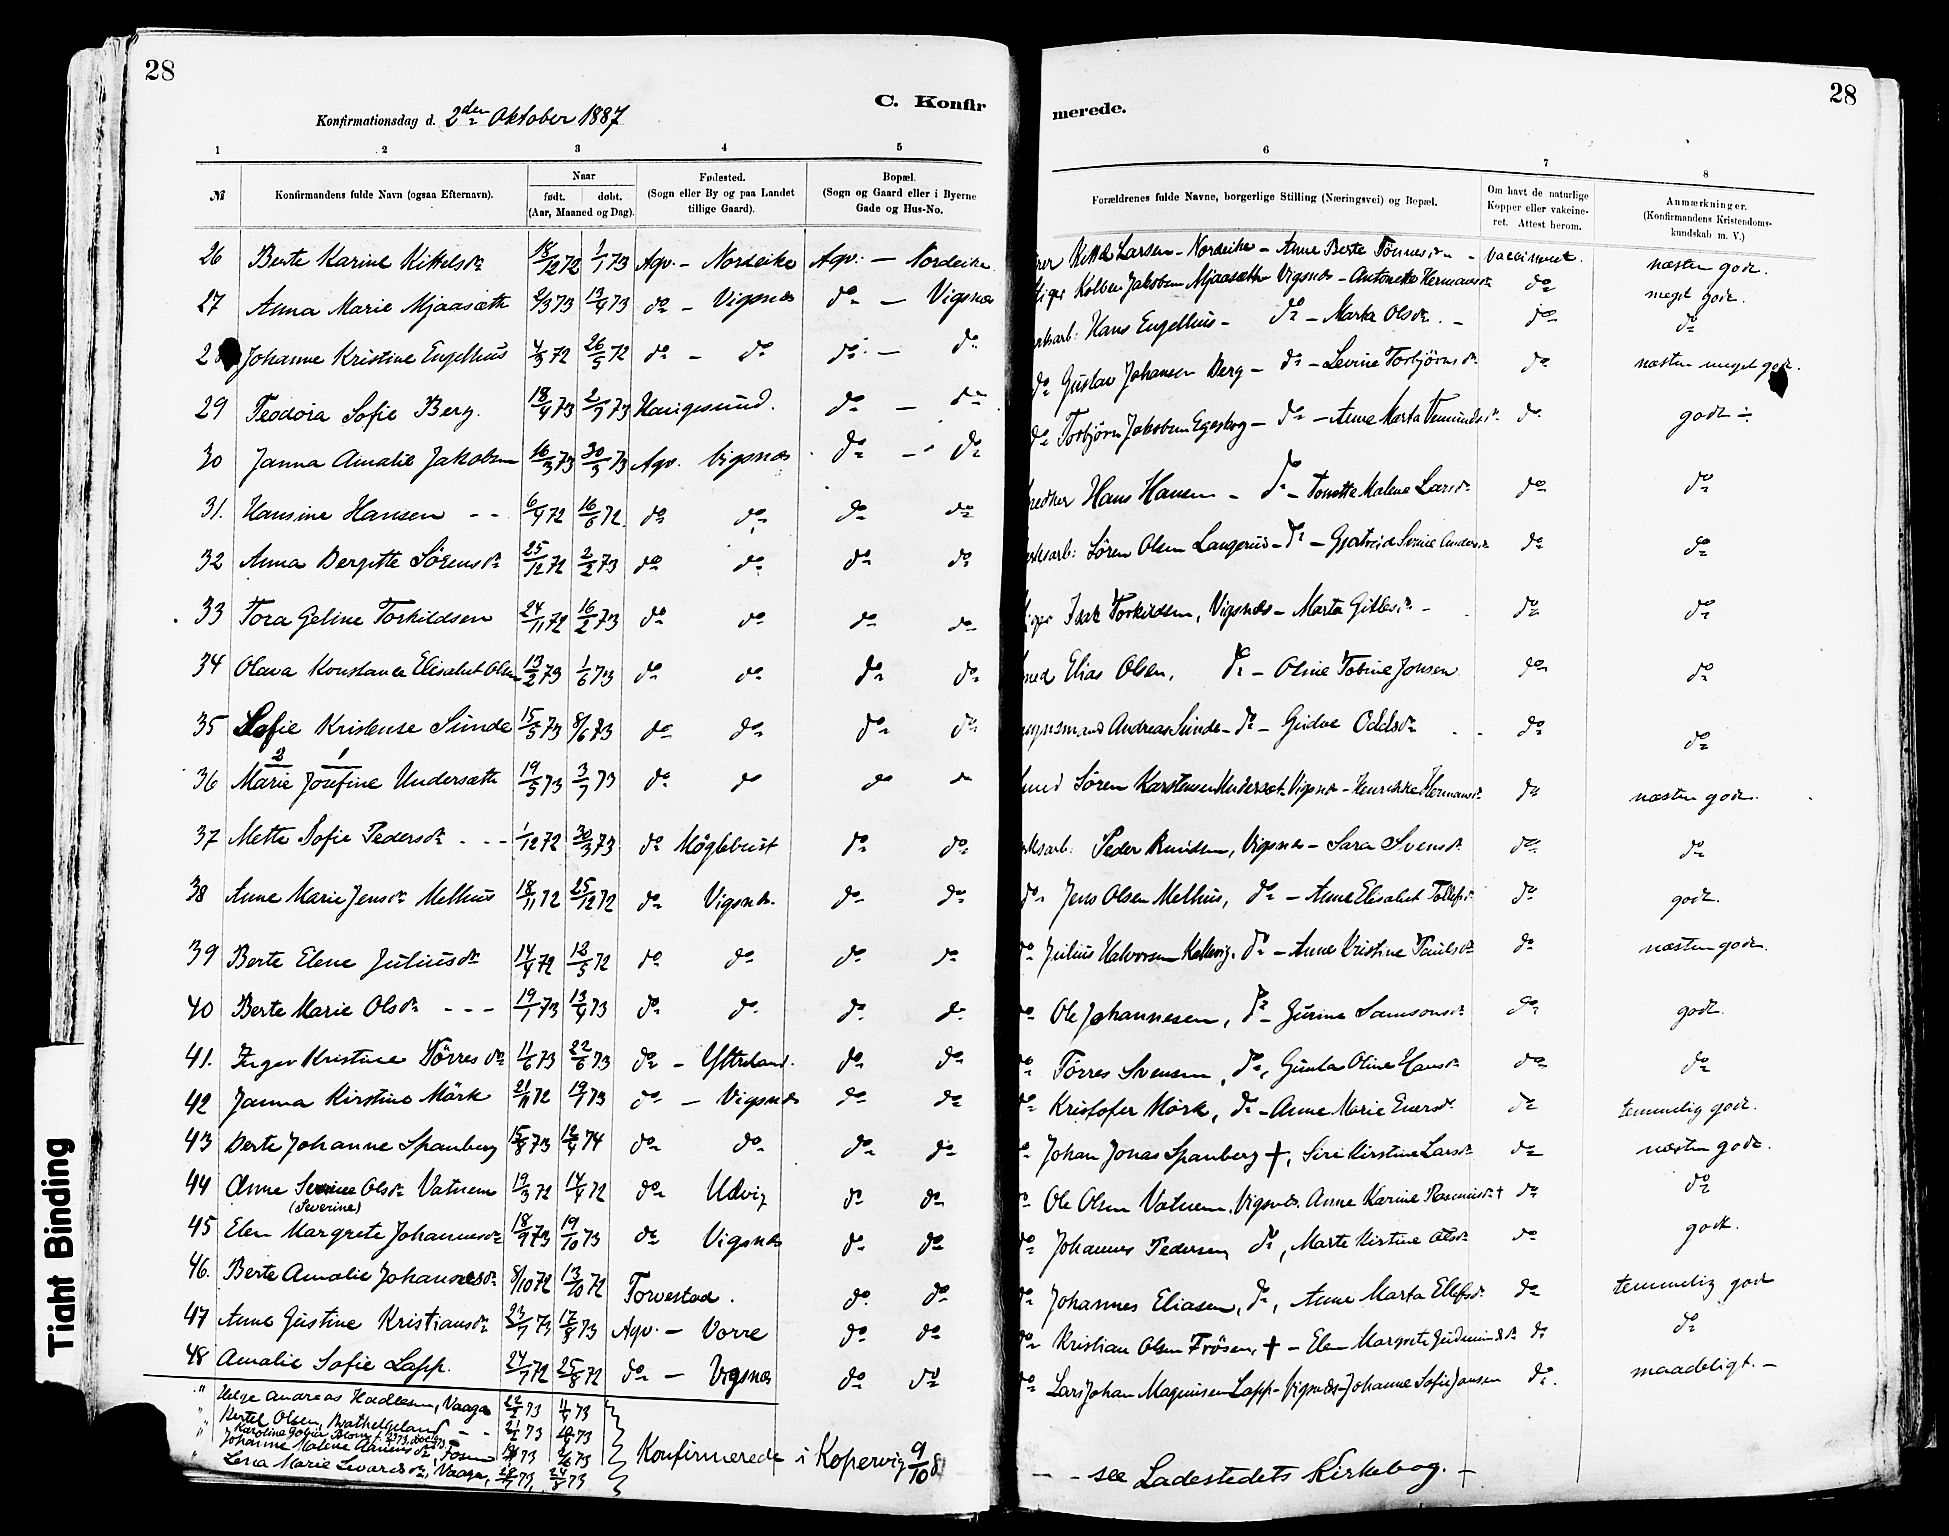 28
28
C. Konfir
merede.
Konfirmationsdag d. 2den Oktober 1887
1 2 3 4 5 6 7 8
№ Konfirmandens fulde Navn (ogsaa Efternavn). Naar født. døbt. (Aar, Maaned og Dag). Fødested. (Sogn eller By og paa Landet tillige Gaard). Bopæl. (Sogn og Gaard eller i Byerne Gade og Hus-No. Forældrenes fulde Navne, borgerlige Stilling (Næringsvei) og Bopæl. Om havt de naturlige Kopper eller vakcineret. Attest herom. Anmærkninger. (Konfirmandens Kristendomskundskab m. V.)
26 Berte Karine Kittelsdr 18/12 72 1/1 73 Agv. – Nordeike Agv. – Nordeike Kittel Larsen – Nordeike – Anne Berte Tönnesdr – vaccineret. næsten godt.
27 Anna Marie Mjaasæth 2/3 73 13/4 73 do – Vigsnæs do – Vigsnæs Kolben Jakobsen Mjaasæth Vigsnæs – Antonette Hermansdr do meget godt.
28 Johanne Kristine Engelhus 4/3 72 26/5 72 do – do do – do Hans Engelhus – do – Marta Olsdr. – do do
29 Teodora Sofie Berg. 18/4 73 2/7 73 Haugesund. do – do do Gustav Johansen Berg – do – Levine Torbjörnsdr do næsten meget godt.
30 Janna Amalie Jakobsen 16/3 73 30/3 73 Agv. Vigsnæs do – do do Torbjörn Jakobsen – do – Anne Marta do godt ÷
31. Hansine Hansen - - 6/4 72 16/6 72 do do do do Hans Hansen – do – Tonette Malene Larsdr do do
32 Anna Bergitte Sörensdr 25/12 72 2/2 73 do do do do Sören Olsen Langerud – do – do do
33 Tora Geline Torkildsen 24/11 72 16/2 73 do do do do Isak Torkildsen, Vigsnæs – Marta Gitlesdr – do do
34 Olava Konstance Elisabet Olsen 13/2 73 1/6 73 do do do do Elias Olsen, do – Oline Tobine Jonsen do do
35 Sofie Kristense Sunde 15/5 73 8/6 73 do do do do Andreas Sunde – do – Gidve Oddsdr do do
2 1
36 Marie Josefine Undersæth 19/5 73 3/7 73 do do do do Sören Karstensen Undersæt. Vigsnæs – Henrikke Hermansdr do næsten godt.
37 Mette Sofie Pedersdr - - - 1/12 72 30/3 73 do Möglebust do do Peder Knudsen, Vigsnæs – Sara Svensdr do do
38 Anne Marie Jensdr Melhus 18/11 72 25/12 72 do Vigsnæs. do do do Jens Olsen Melhus, do – Anne Elisabet Tollefsdr do godt.
39 Berte Elene Juliusdr 14/4 72 12/5 72 do do do do do Julius Halvorsen do – Anne Kristine Paulsdr do næsten godt.
40 Berte Marie Olsdr - - - 19/1 73 13/4 73 do do do do do Ole Johannesen, do – Gurine Samsonsdr do godt.
41. Inger Kristine Törresdr 11/6 73 22/6 73 do – Ytreland. do do do Törres Svensen, do, Gunla Oline Hansdr do do
42 Janna Kirstine Mörk 21/11 72 19/1 73 do – Vigsnæs do do do Kristofer Mörk, do – Anne Marie Enersdr do temmelig godt.
43 Berte Johanne Spanberg 15/8 73 12/4 74 do do do do do Johan Jonas Spanberg †, Siri Kirstine Larsdr do næsten godt.
44 Anne Severine Olsdr Vatnem 19/3 72 14/4 72 do Udvig do do do Ole Olsen Vatnem, Vigsnæs. Anne Karine Rasmusdr † do do
(Severine)
45 Elen Margrete Johannesdr 18/9 73 19/10 73 do Vigsnæs do do do Johannes Pedersen do, Marte Kirtine Olsdr do godt.
46. Berte Amalie Johannesdr 8/10 72 13/10 72 Torvestad. do do do Johannes Eliasen, do, Anne Marta Ellefsdr do temmelig god
47 Anne Gustine Kristiansdr 23/7 73 17/8 73 Agv. – Vorre do do do Kristian Olsen Frösen, † – Elen Margrete Gudmundsdr do do
48 Amalie Sofie Lapp. 24/7 72 25/8 72 do – Vigsnæs do do do Lars Johan Magnusen Lapp – Vigsnæs – Johanne Sofie Jansen do. maadeligt. –
" Helge Andreas Hadlesen, Vaaga 22/2 73 11/4 73
" Bertel Olsen, - - 21/2 73 73
" Karoline
Johanne Malene Fosen 73 73
" Lena Marie Sivardsdr, Vaaga, 73, 24/8 73
Konfirmerede i Kopervig 9/10 8
– - see Ladestedets Kirkebog. –
Tight Binding